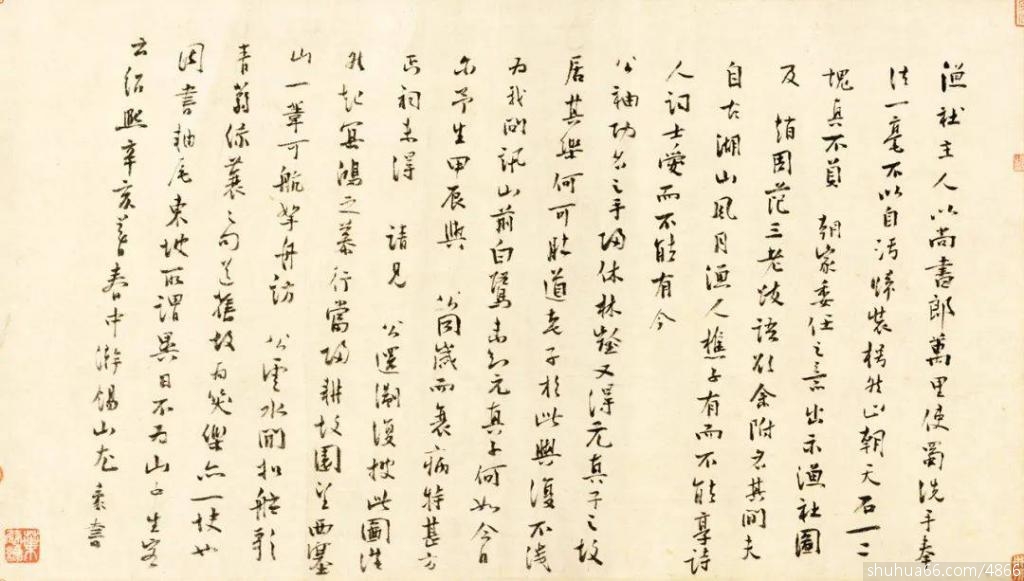 漁社主人以尚書郎萬里使蜀洗手奉
法一毫不以自污歸裝枵然止朝天石一二
塊真不負 朝家委任之意出示漁社圖
及 趙周范三老跋語欲余附名其間夫
自古湖山風月漁人樵子有而不能享詩
人詞士愛而不能有今
公袖功名之手歸休林壑又得元真子之故
居其樂何可勝道老子於此興復不淺
為我問訊山前白鷺未知元真子何如今日
尔予生甲辰與 公同歲而衰病特甚方
丐祠未得 請見 公還澗復披此圖浩
然起冥鴻之慕行當歸耕故園望西塞
山一葦可航拏舟訪 公雲水間扣舷歌
青蒻綠蓑之句道舊故為笑樂亦一快也
因書軸尾東坡所謂異日不為山中生客
云紹熙辛亥暮春中澣錫山尤袤書
shuhua66.com/4866